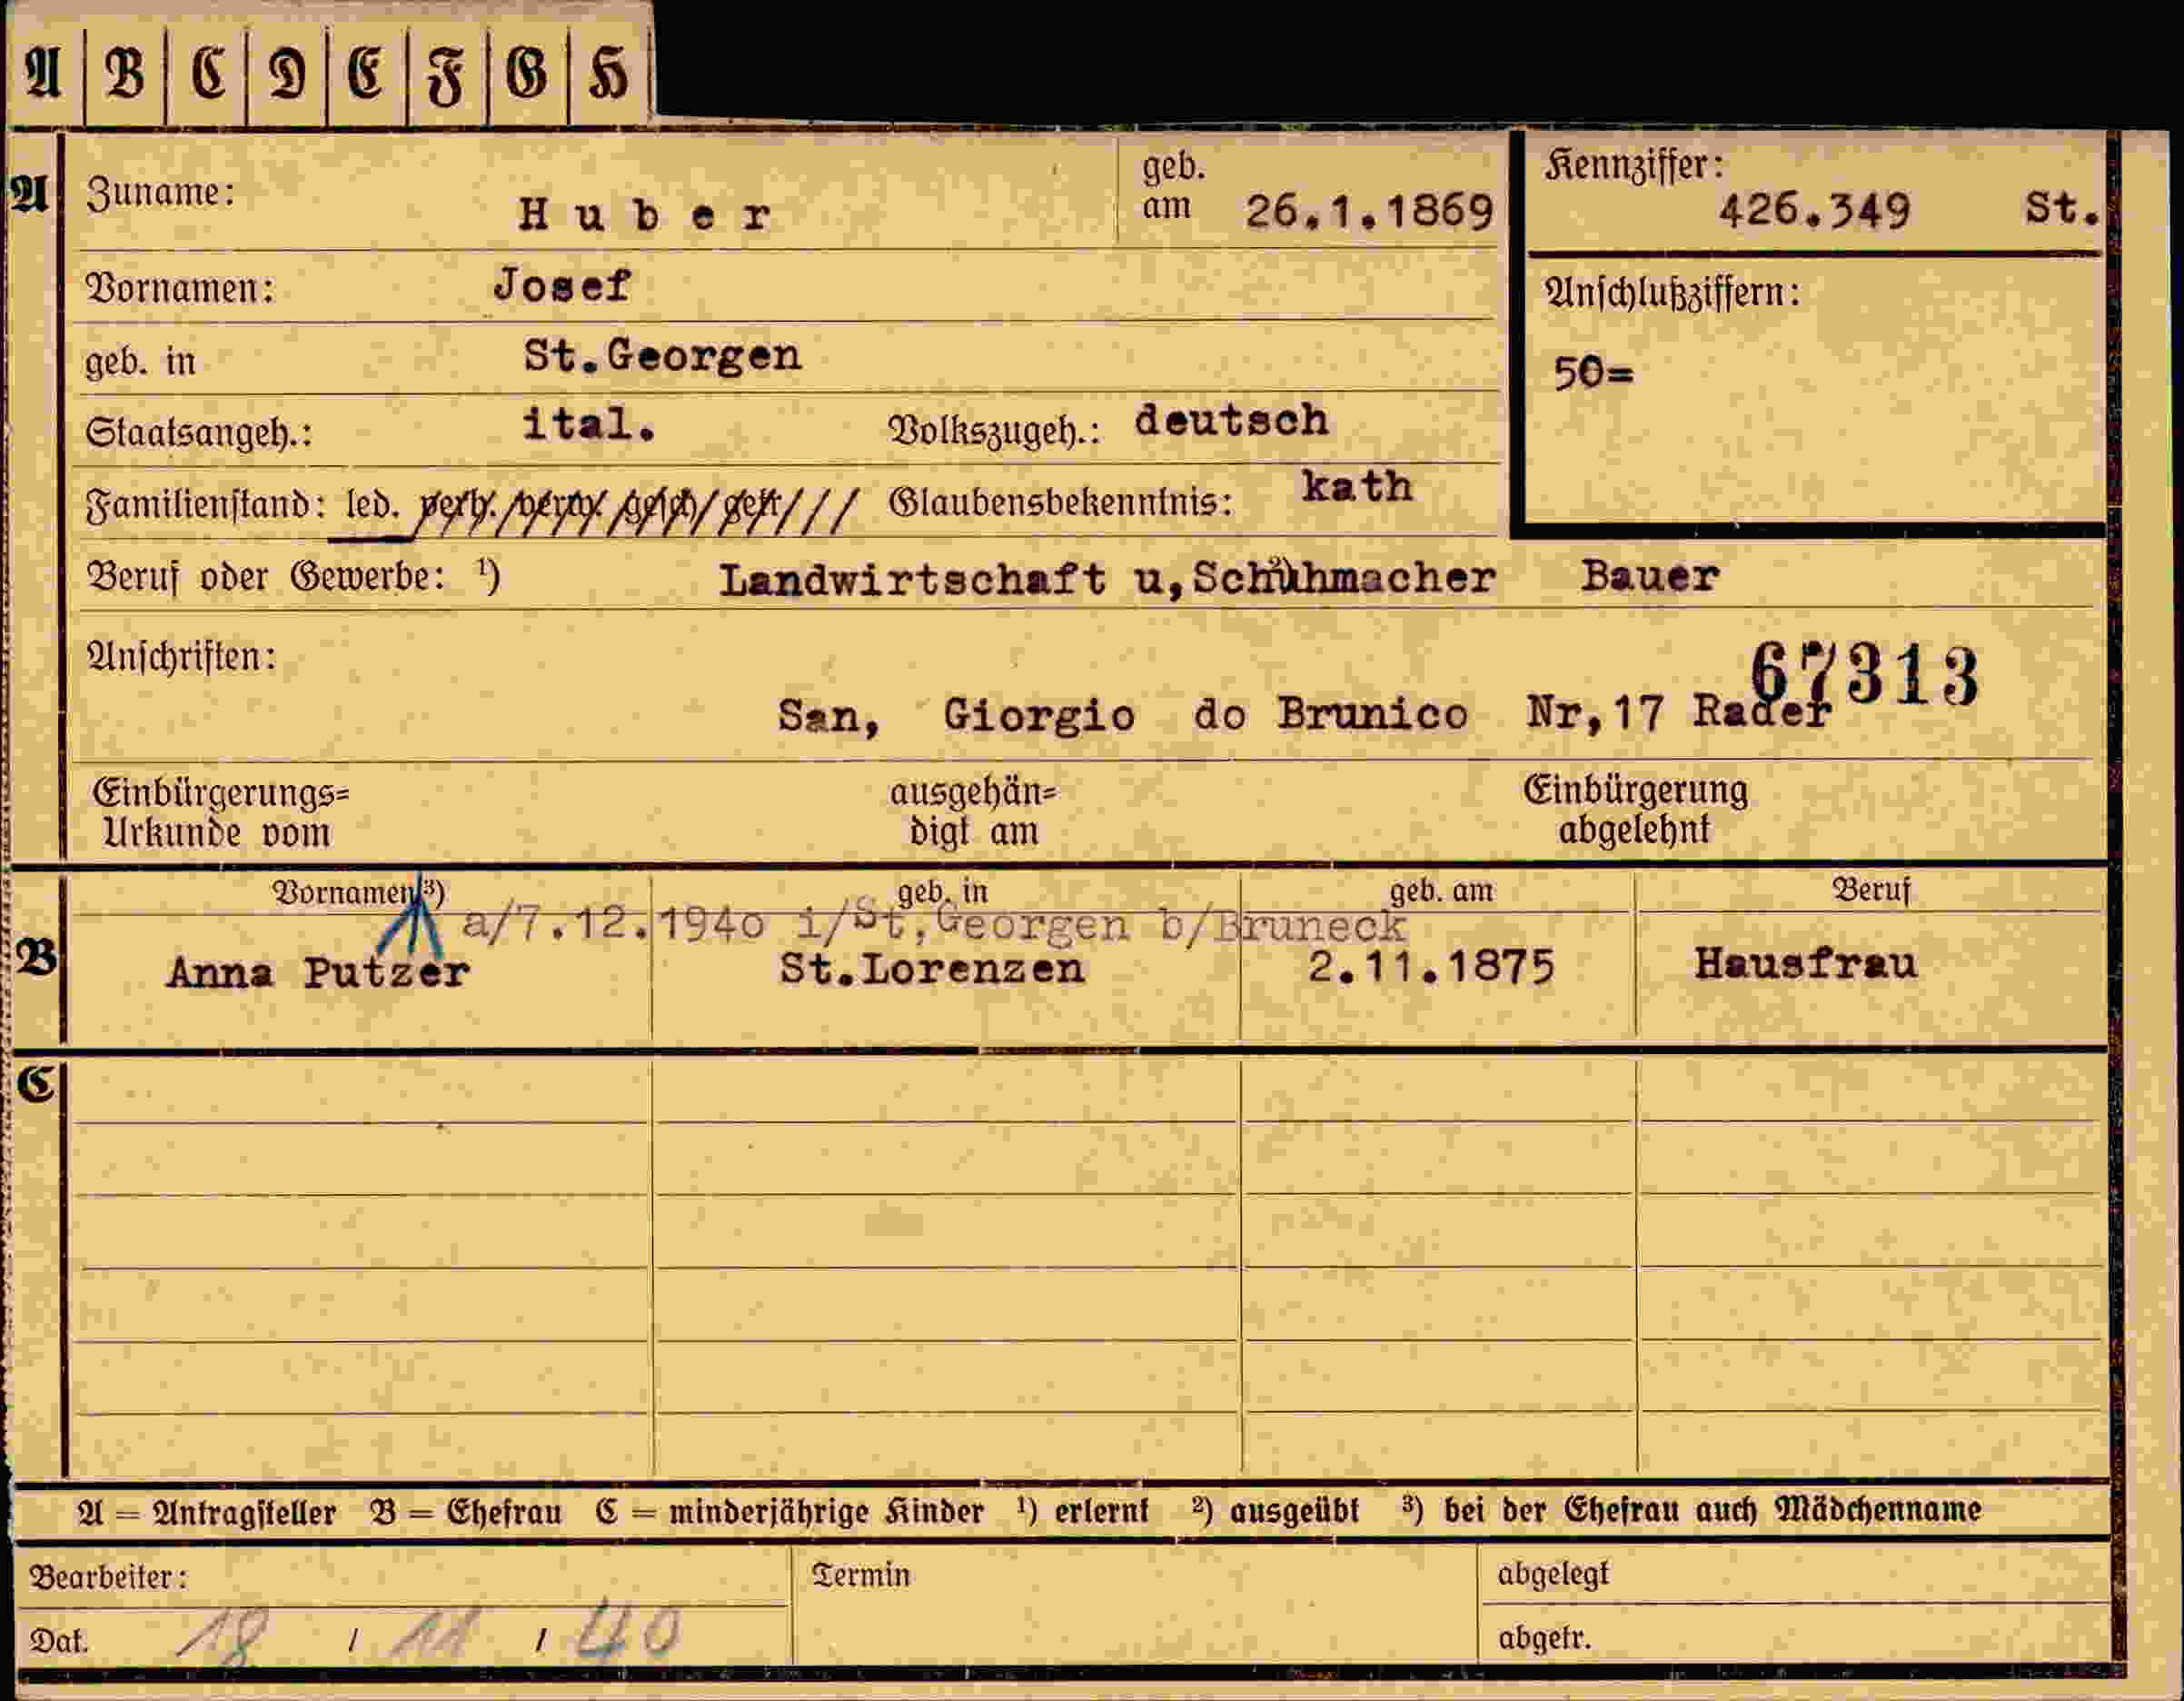 A B C D E F G H
A Zuname: Huber geb. am 26.1.1869 Kennziffer: 426.349 St.
Vornamen: Josef Anschlußziffern:
geb. in St.Georgen 50=
Staatsangeh.: ital. Volkszugeh.: deutsch
Familienstand: led. verh. verw. gesch. getr. Glaubensbekenntnis: kath
Beruf oder Gewerbe: ¹) Landwirtschaft u,Schuhmacher Bauer
Anschriften: 67313
San, Giorgio do Brunico Nr,17 Rader
Einbürgerungs= ausgehän= Einbürgerung
Urkunde vom digt am abgelehnt
B Vornamen ³) geb. in geb. am Beruf
a/7.12.1940 i/St,Georgen b/Bruneck
Anna Putzer St.Lorenzen 2.11.1875 Hausfrau
C
A = Antragsteller B = Ehefrau C = minderjährige Kinder ¹) erlernt ²) ausgeübt ³) bei der Ehefrau auch Mädchenname
Bearbeiter: Termin abgelegt
Dat. 18 / 11 / 40 abgetr.